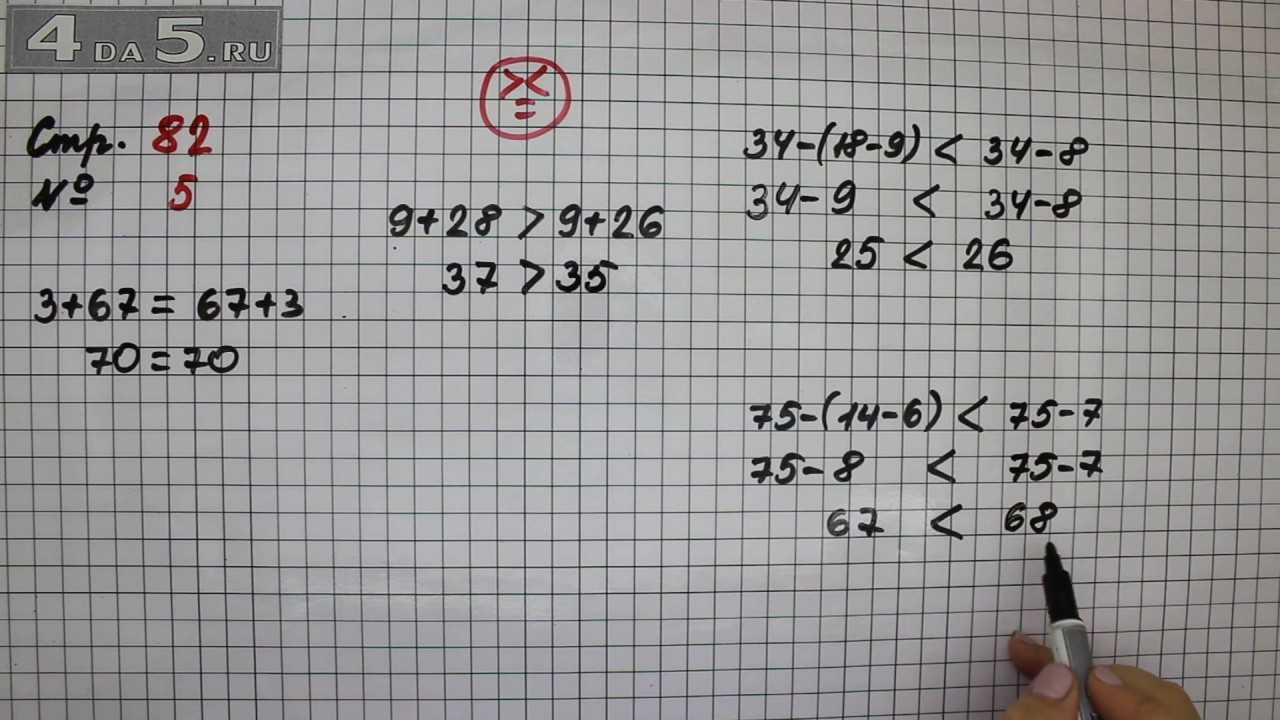 4DA5.RU
Стр. 82
№ 5
> <
=
3+67 = 67+3
70 = 70
9+28 > 9+26
37 > 35
34-(18-9) < 34-8
34-9 < 34-8
25 < 26
75-(14-6) < 75-7
75-8 < 75-7
67 < 68